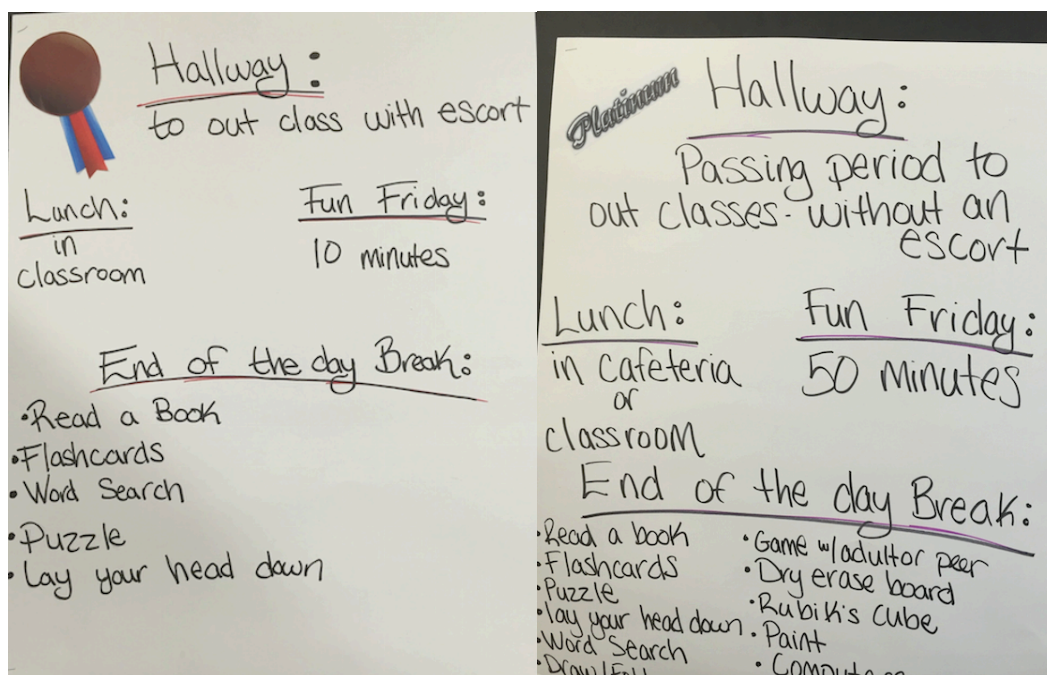 Hallway:
to out class with escort
Lunch:
in
classroom
Fun Friday:
10 minutes
End of the day Break:
•Read a Book
•Flashcards
•Word Search
•Puzzle
•Lay your head down
Platinum
Hallway:
Passing period to
out classes- without an
escort
Lunch:
in cafeteria
or
classroom
Fun Friday:
50 minutes
End of the day Break:
•Read a book
•Flashcards
•Puzzle
•lay your head down
•Word Search
•Game w/adult or peer
•Dry erase board
•Rubik's cube
•Paint